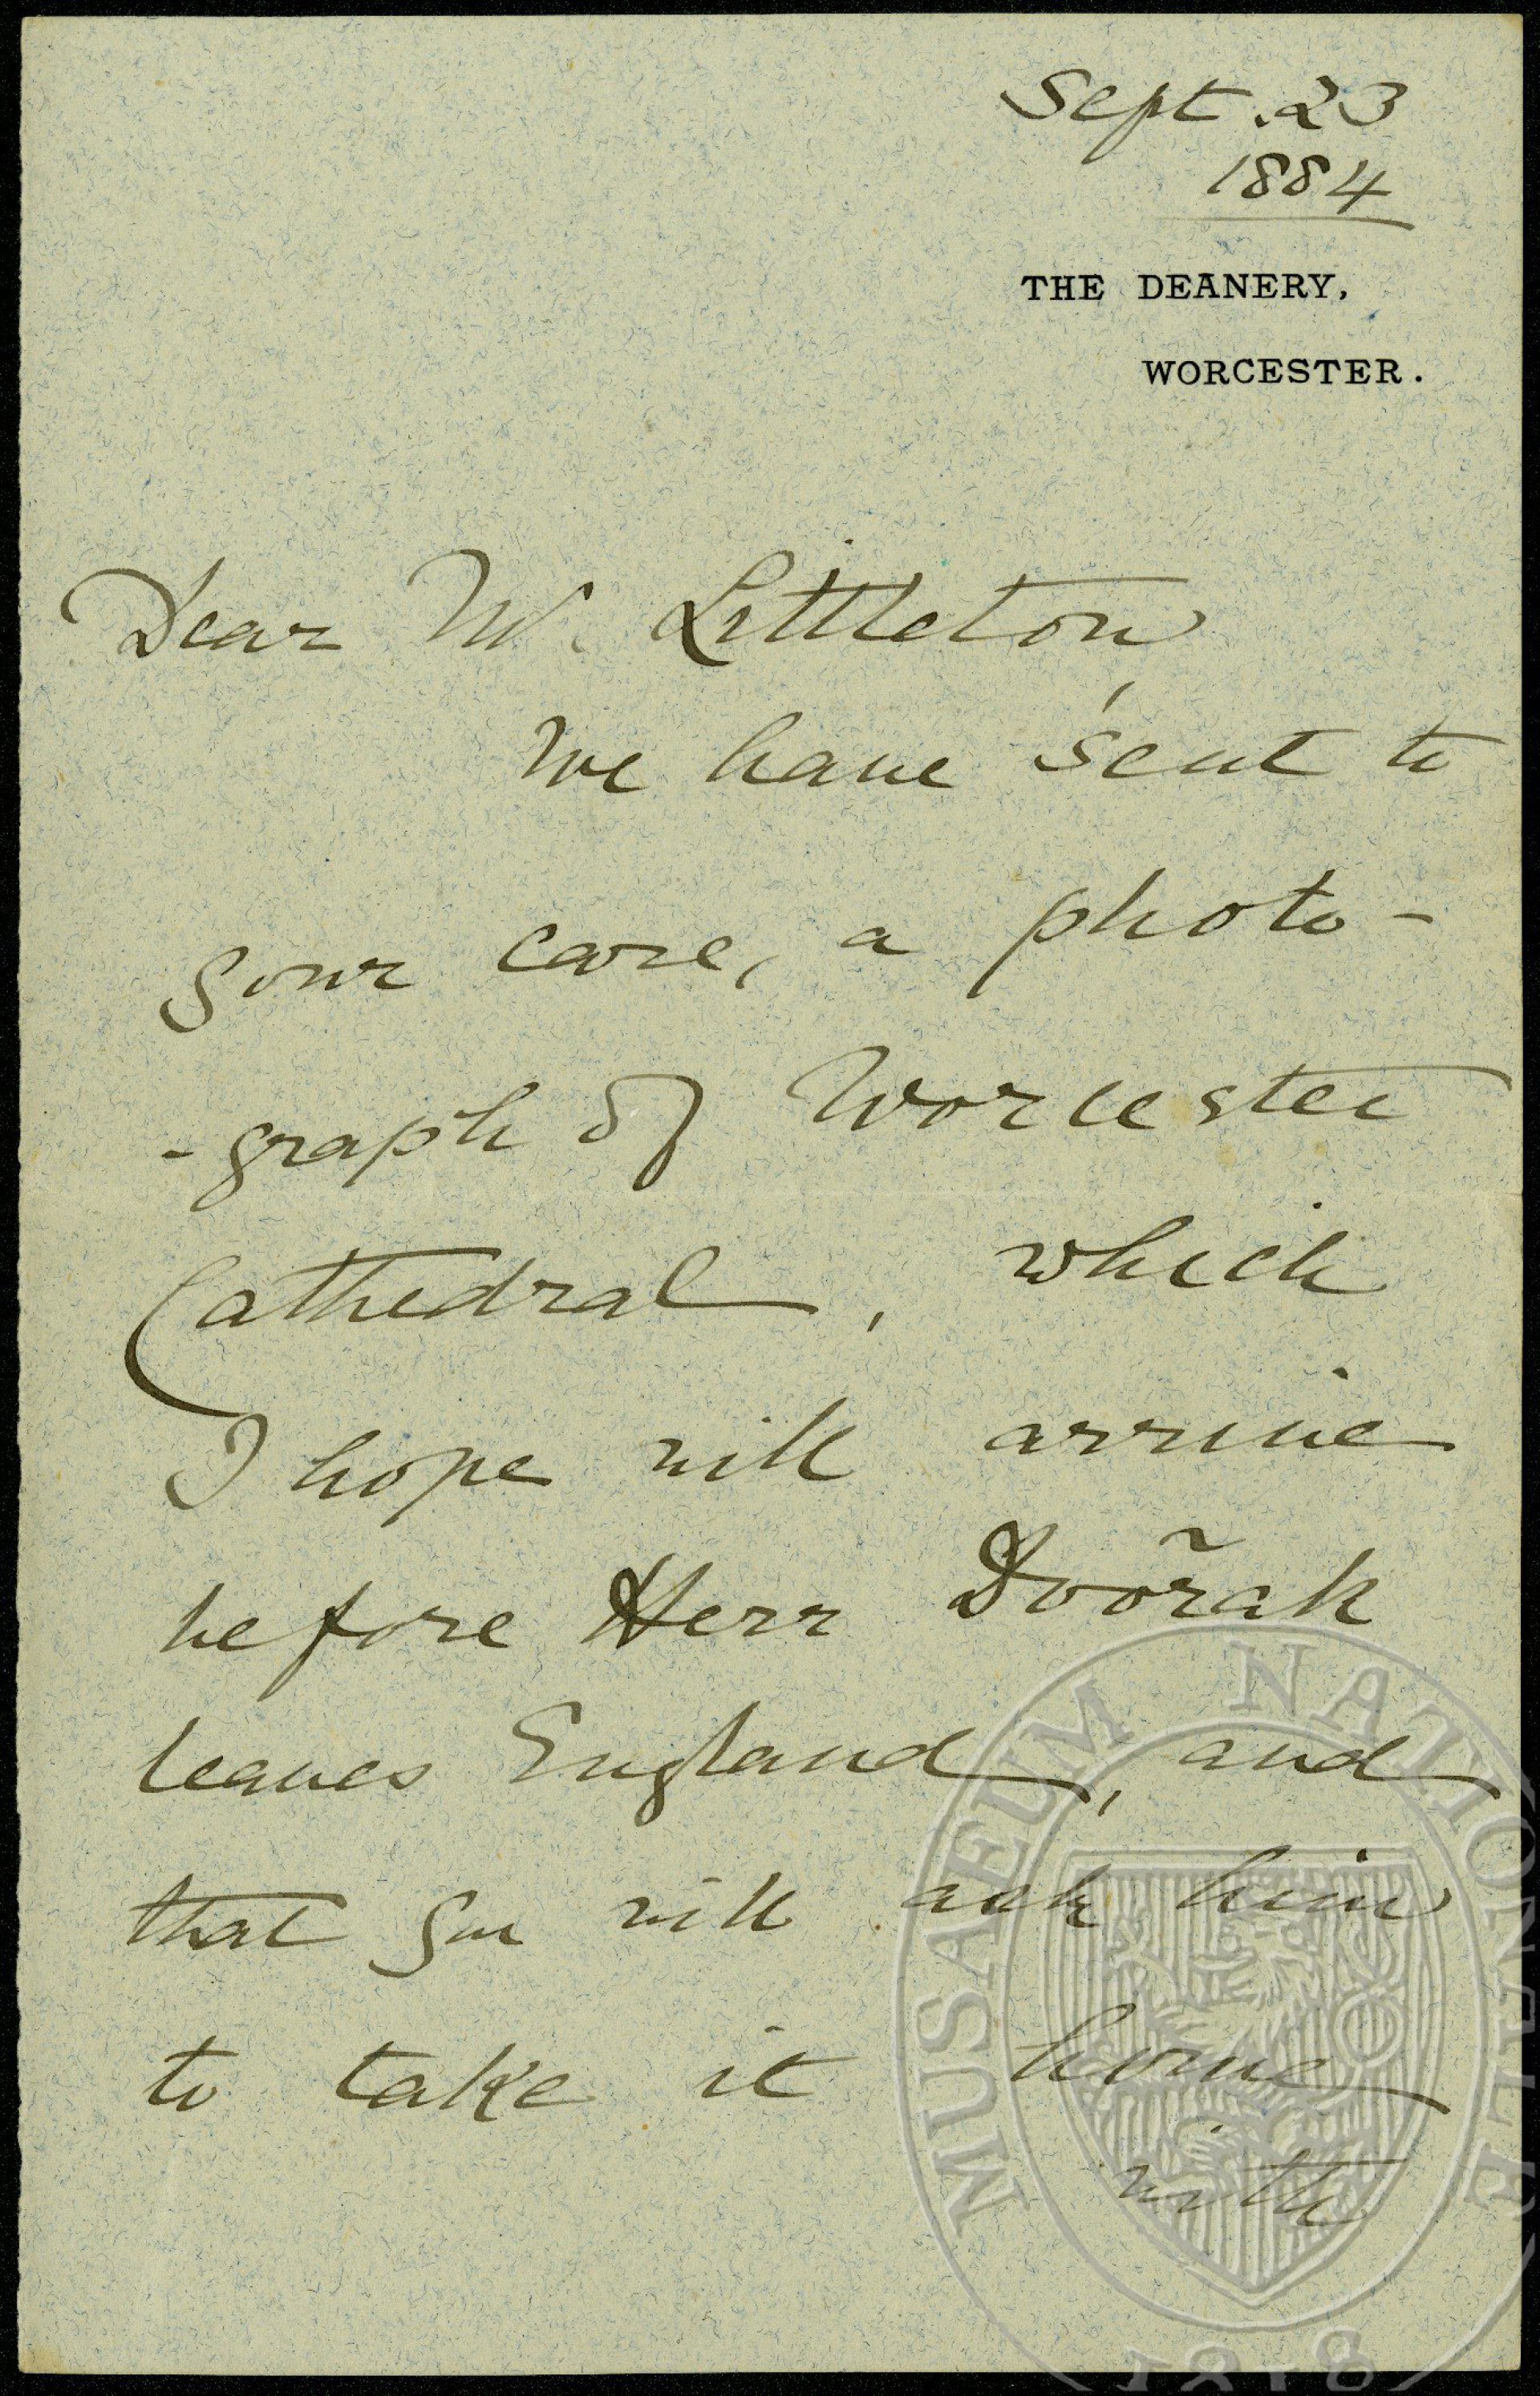 Sept. 23
1884
THE DEANERY,
WORCESTER.
Dear Mr. Littleton
We have sent to
your care, a photo-
-graph of Worcester
Cathedral, which
I hope will arrive
before Herr Dvořak
leaves England, and
that you will ask him
to take it home
with
MUSAEUM NATIONALE
1818